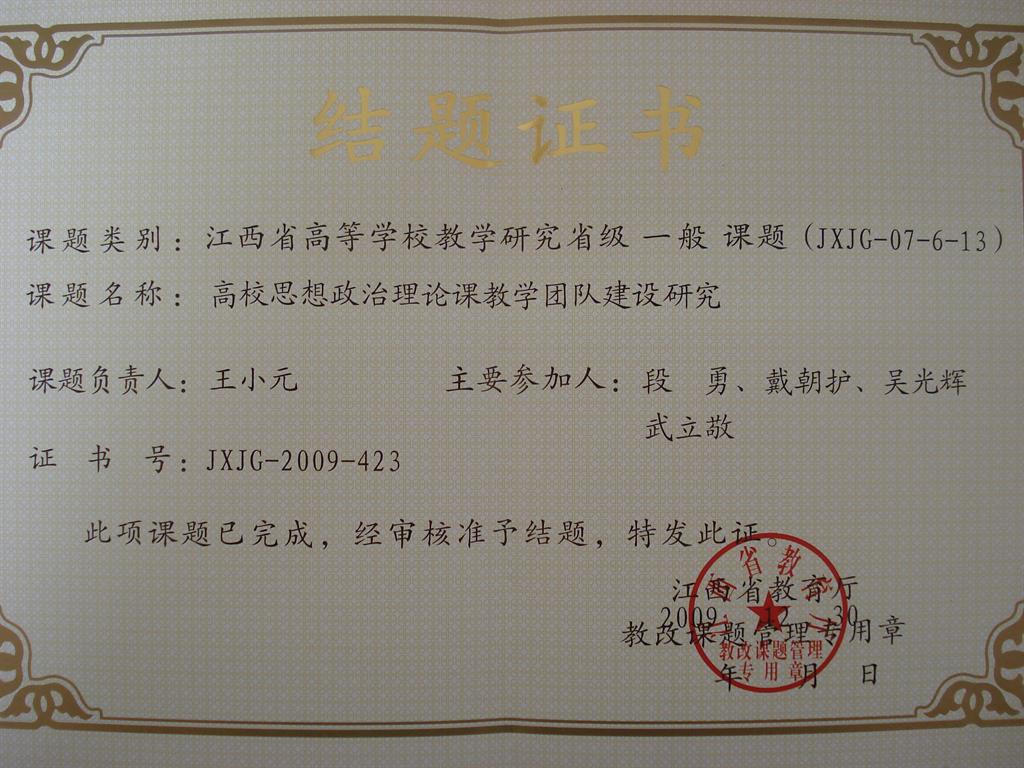 结题证书
课题类别：江西省高等学校教学研究省级 一般 课题（JXJG-07-6-13）
课题名称：高校思想政治理论课教学团队建设研究
课题负责人：王小元 主要参加人：段 勇、戴朝护、吴光辉
武立敬
证 书 号：JXJG-2009-423
此项课题已完成，经审核准予结题，特发此证。
江西省教育厅
2009 12 30
教改课题管理专用章
年 月 日
江西省教育厅
教改课题管理
专用章